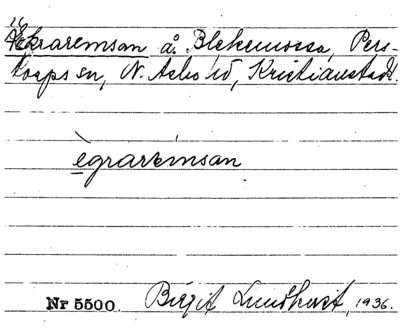 Ekraremsan å. Blekemossa, Pers-
torps sn, N. Åsbo hd, Kristianstads l.
ègraremsan
Nr 5500. Birgit Lundkvist, 1936.